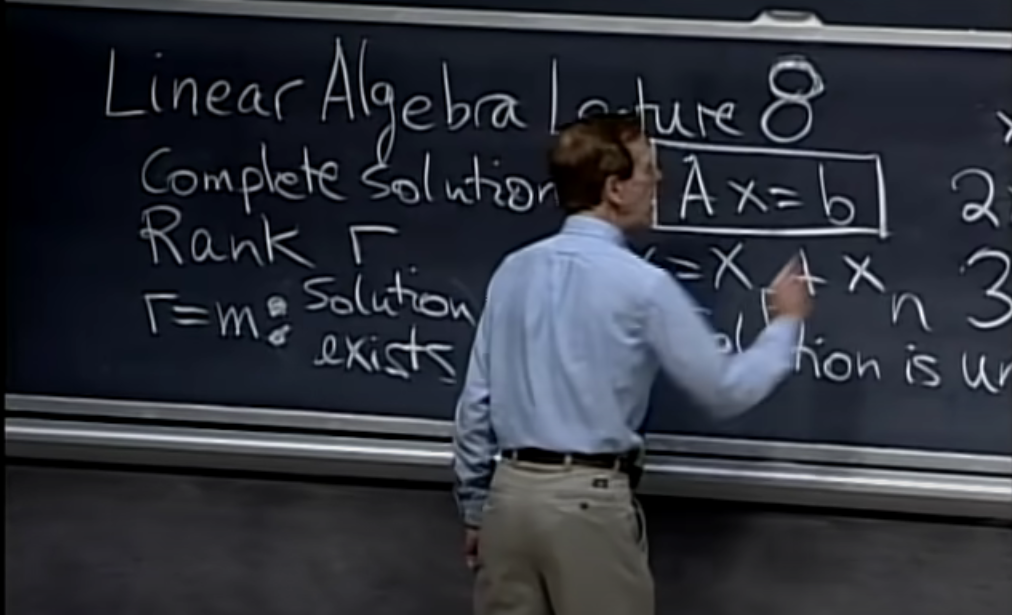 Linear Algebra Lecture 8
Complete solution Ax=b
Rank r = x + x n
r=m: Solution
exists is
x
2
3